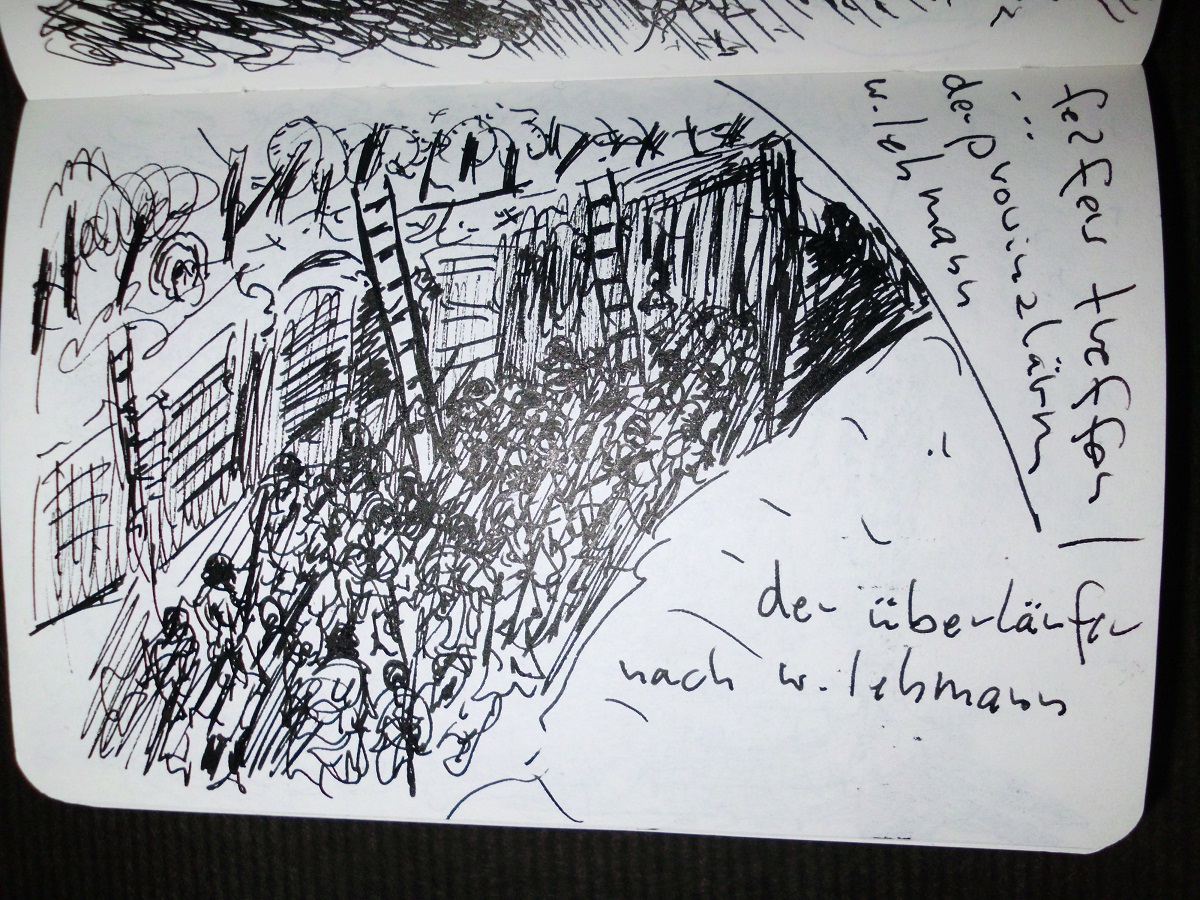 treffen /
der provinzlärm
w. lehmann
der überläufer
nach w. lehmann